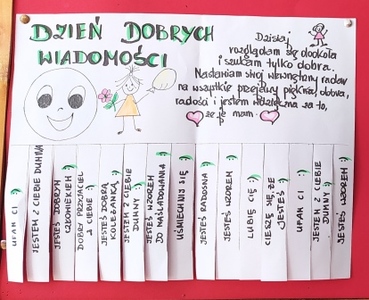 DZIEŃ DOBRYCH
WIADOMOŚCI
Dzisiaj
rozglądam się dookoła
i szukam tylko dobra.
Nastawiam swój wewnętrzny radar
na wszystkie przejawy piękna, dobra,
radości i jestem wdzięczna za to,
że je mam.
UFAM CI
JESTEM Z CIEBIE DUMNA
JESTEŚ DOBRYM
CZŁOWIEKIEM
DOBRY PRZYJACIEL
Z CIEBIE
JESTEŚ DOBRĄ
KOLEŻANKĄ
JESTEM Z CIEBIE
DUMNY
JESTEŚ WZOREM
DO NAŚLADOWANIA
UŚMIECHNIJ SIĘ
JESTEŚ RADOSNA
JESTEŚ WZOREM
LUBIĘ CIĘ
CIESZĘ SIĘ, ŻE
JESTEŚ
UFAM CI
JESTEM Z CIEBIE
DUMNY
JESTEŚ WZOREM